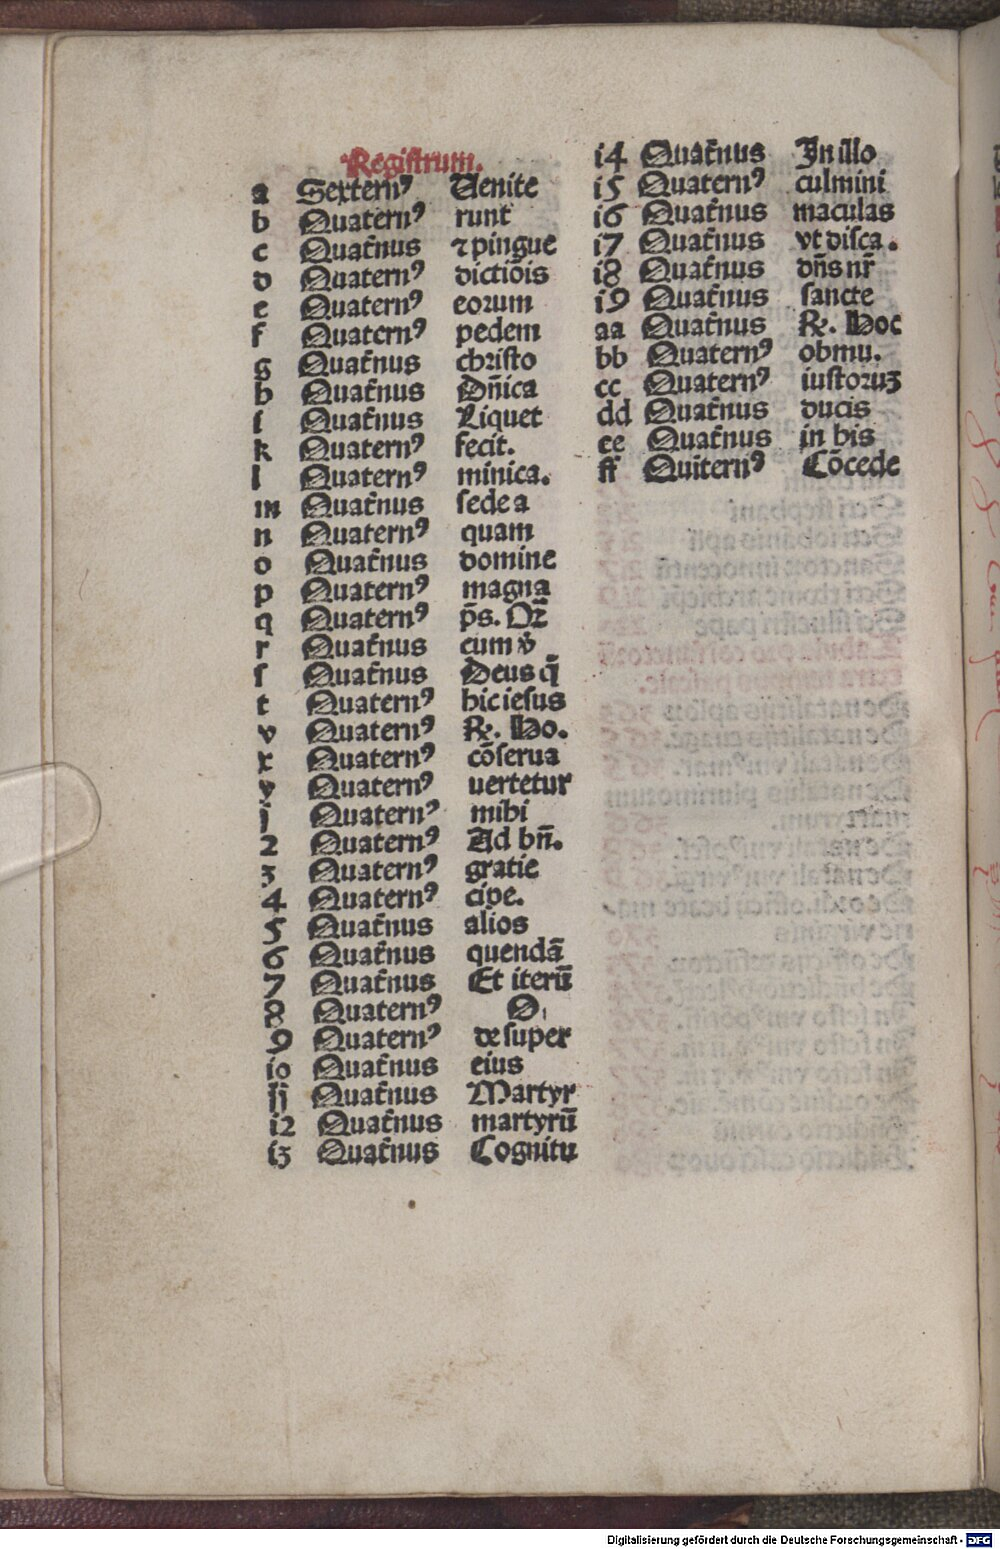 Registrum.
a Sexternꝰ Venite
b Quaternꝰ runt
c Quat̄nus ⁊ pingue
d Quaternꝰ dictiōis
e Quaternꝰ eorum
f Quaternꝰ pedem
g Quat̄nus christo
h Quat̄nus Dn̄ica
i Quat̄nus Liquet
k Quaternꝰ fecit.
l Quaternꝰ minica.
m Quat̄nus sede a
n Quaternꝰ quam
o Quat̄nus domine
p Quaternꝰ magna
q Quaternꝰ p̄s. Or̄
r Quat̄nus cum v̇
ſ Quat̄nus Deus q̄
t Quaternꝰ hic iesus
v Quaternꝰ ℞. Ho.
x Quaternꝰ cōserua
y Quaternꝰ uertetur
j Quaternꝰ mihi
2 Quaternꝰ Ad bn̄.
3 Quaternꝰ gratie
4 Quaternꝰ cipe.
5 Quat̄nus alios
6 Quat̄nus quendā
7 Quat̄nus Et iterū
8 Quaternꝰ D.
9 Quaternꝰ de super
io Quat̄nus eius
ij Quat̄nus Martyr
i2 Quat̄nus martyrū
i3 Quat̄nus Cognitu
i4 Quat̄nus In illo
i5 Quaternꝰ culmini
i6 Quat̄nus maculas
i7 Quat̄nus vt disca.
i8 Quat̄nus dn̄s nr̄
i9 Quat̄nus sancte
aa Quat̄nus ℞. Hoc
bb Quaternꝰ obmu.
cc Quaternꝰ iustoruꝫ
dd Quat̄nus ducis
ee Quat̄nus in his
ff Quiternꝰ Cōcede
Digitalisierung gefördert durch die Deutsche Forschungsgemeinschaft - DFG